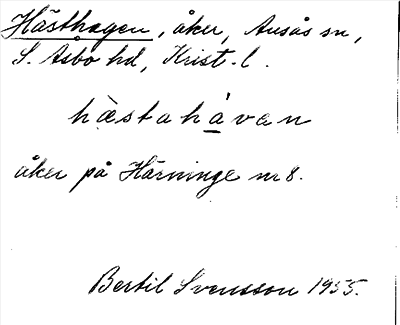 Hästhagen, åker, Ausås sn,
S. Åsbo hd, Krist. l.
hàstahàvan
åker på Härninge nr 8.
Bertil Svensson 1955.